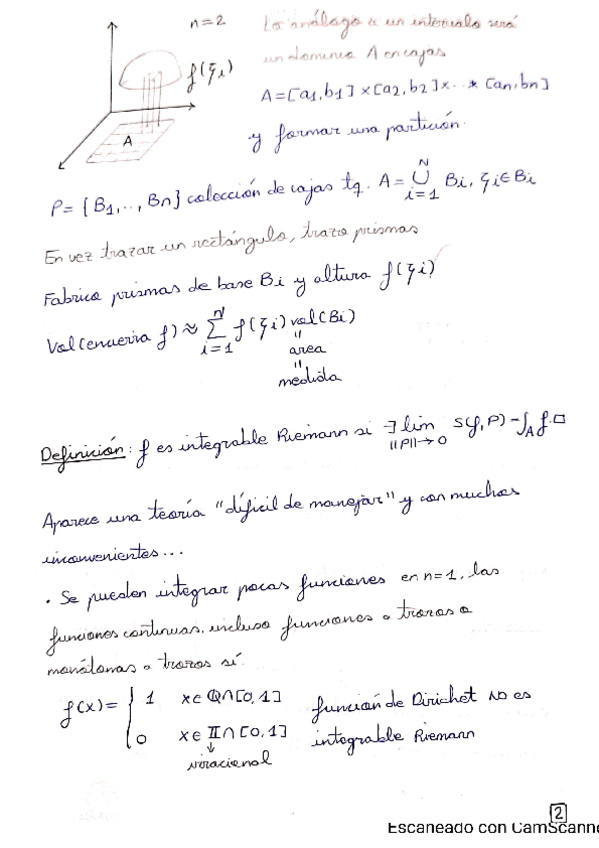 n=2 Lo análogo a un intervalo será
un dominio A en cajas
f(ξi)
A=[a1,b1]×[a2,b2]×...×[an,bn]
A
y formar una partición.
P={B1,..,Bn} colección de cajas tq. A=⋃_{i=1}^{N} Bi, ξi∈Bi
En vez trazar un rectángulo, trazo prismas
Fabrico prismas de base Bi y altura f(ξi)
Vol(encierra f)≈ ∑_{i=1}^{N} f(ξi) vol(Bi)
"
area
"
medida
Definición: f es integrable Riemann si ∃ lim_{||P||→0} S(f,P)=∫_A f.□
Aparece una teoría "díficil de manejar" y con muchos
inconvenientes...
· Se pueden integrar pocas funciones en n=1, las
funciones continuas, incluso funciones a trozos o
monótonas a trozos sí.
f(x)= { 1 x∈ℚ∩[0,1] función de Dirichet no es
0 x∈𝕀∩[0,1] integrable Riemann
↓
irracional
2
Escaneado con CamScanne